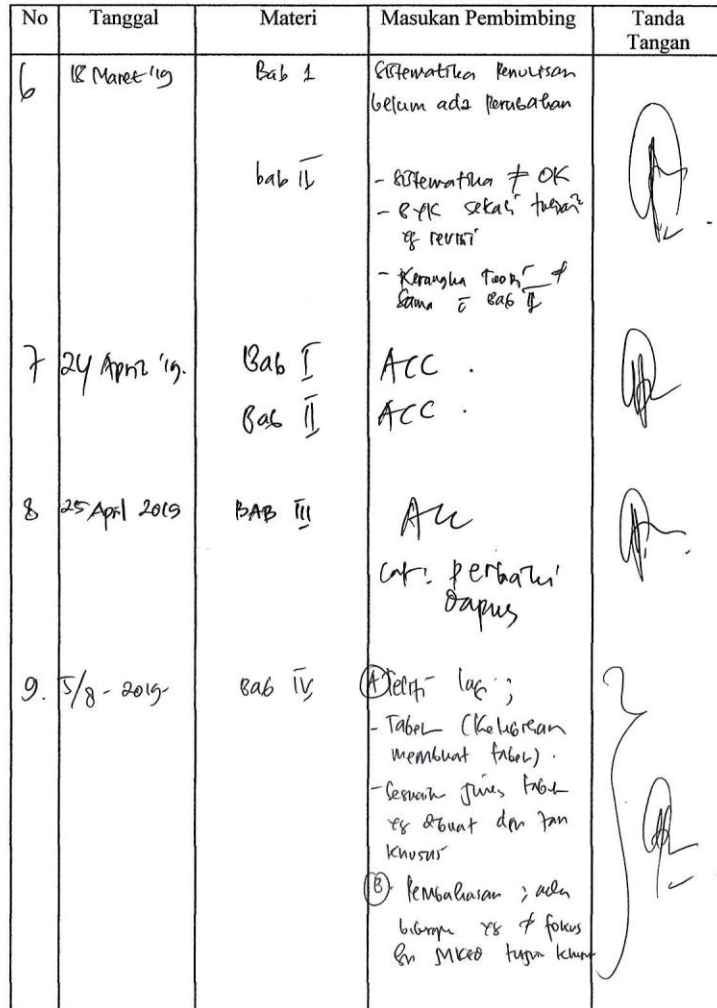 No Tanggal Materi Masukan Pembimbing Tanda Tangan
6 18 Maret '19 Bab 1 Sistematika Penulisan
belum ada Perubahan
bab II - Sistematika ≠ OK
- BYK sekali
yg revisi
- Kerangka Teori ≠
Sama Bab II
7 24 April '19. Bab I ACC .
Bab II ACC .
8 25 April 2019 BAB III ACC
Cat: perbaiki
Dapus
9. 5/8 - 2019 Bab IV (A) Teliti lagi ;
- Tabel (Keliruan
membuat tabel) .
- Sesuain tabel
yg dibuat dgn
Khusus
(B) Pembahasan ; ada
yg ≠ fokus